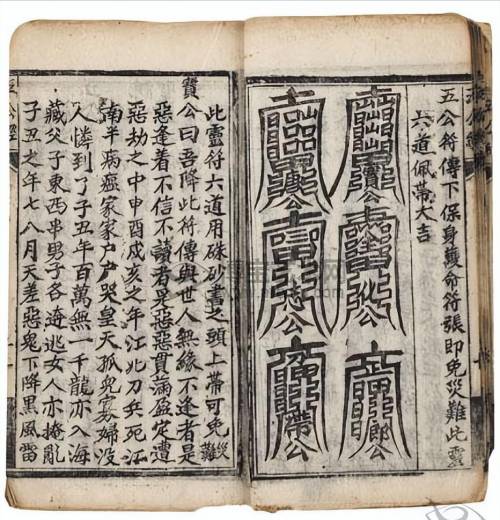 五公符傳下保身護命符張即免災難此靈
六道佩帶大吉
公
公
公
志公
公
帶公
此靈符六道用硃砂書之頭上帶可免災難
寶公曰吾降此符傳與世人無緣不逢者是
惡逢着不信不讀者是惡惡貫滿盈定遭
惡劫之中申酉戌亥之年江北刀兵死江
南半病瘟家家戶戶哭皇天孤兒寡婦沒
人憐到了子丑年百萬無一千龍亦入海
藏父子東西串男子各逩逃女人亦掩亂
子丑之年七八月天差惡鬼下降黑風雷
五公經